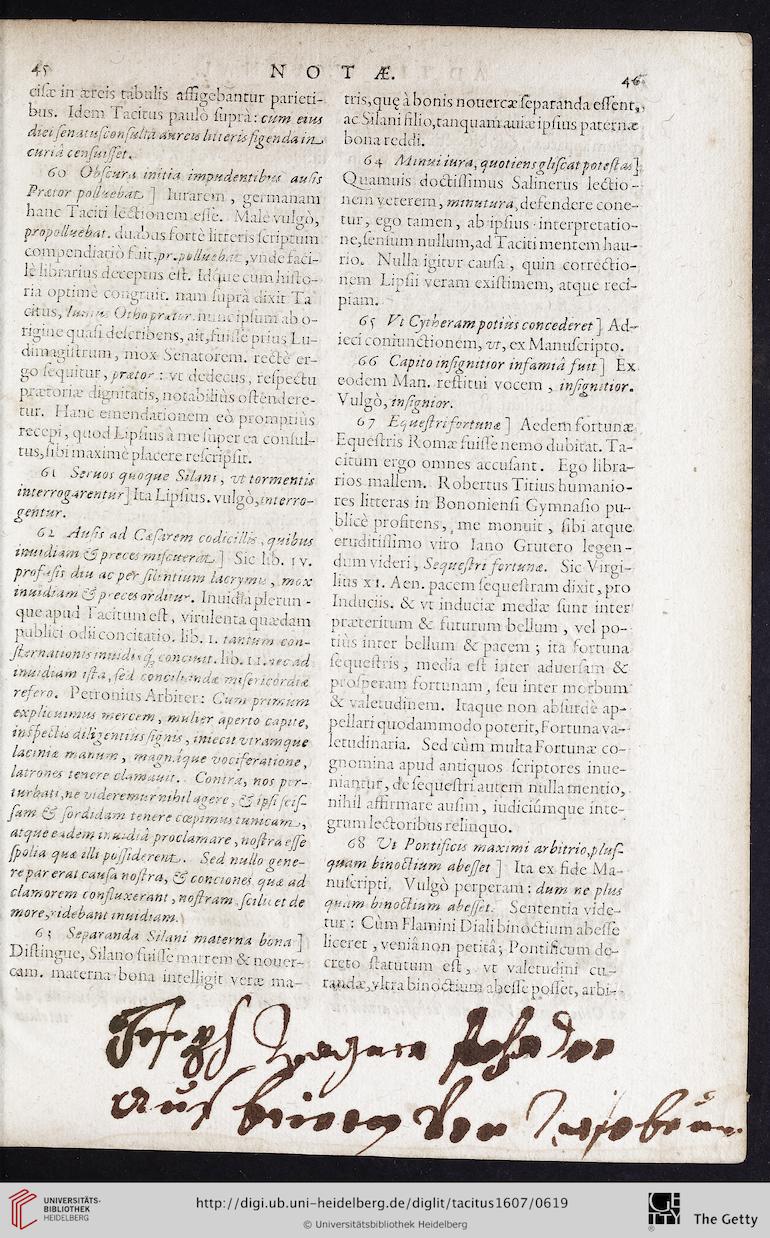 45
NOTÆ.
46
cisæ in æreis tabulis affigebantur parieti-
bus. Idem Tacitus paulò suprà: cum eius
diei senatusconsulta aureis litteris figenda in
curiâ censuisset.
60 Obscura initia impudentibus ausis
Prætor polluebat ] Iurarem, germanam
hanc Taciti lectionem esse. Malè vulgò,
propolluebat. duabus fortè litteris scriptum
compendiatiò fuit, pr. polluebat, vnde faci-
lè librarius deceptus est. Idque cum histo-
ria optimè congruit. nam suprà dixit Ta
citus, Iunius Otho prætor. nunc ipsum ab o-
rigine quasi describens, ait, fuisse prius Lu-
dimagistrum, mox Senatorem. rectè er-
go sequitur, prætor: vt dedecus, respectu
prætoriæ dignitatis, notabilius ostendere-
tur. Hanc emendationem eò promptius
recepi, quod Lipsius à me super ea consul-
tus, sibi maximè placere rescripsit.
61 Seruos quoque Silani, vt tormentis
interrogarentur] Ita Lipsius. vulgò, interro-
gentur.
62 Ausis ad Cæsarem codicillis, quibus
inuidiam & preces miscuerat ] Sic lib. IV.
profusis diu ac per silentium lacrymis, mox
inuidiam & preces orditur. Inuidia plerun-
que apud Tacitum est, virulenta quædam
publici odii concitatio. lib. I. tantum con-
sternationis inuidiæq; conciuit. lib. II. nec ad
inuidiam ista, sed conciliandæ misericordiæ
refero. Petronius Arbiter: Cum primum
explicuimus mercem, mulier aperto capite,
inspectis diligentius signis, iniecit vtramque
laciniæ manum, magnáque vociferatione,
latrones tenere clamauit. Contra, nos per-
turbati, ne videremur nihil agere, & ipsi scis-
sam & sordidam tenere cœpimus tunicam,
atque eadem inuidiâ proclamare, nostra esse
spolia quæ illi possiderent. Sed nullo gene-
re par erat causa nostra, & conciones quæ ad
clamorem confluxerant, nostram scilicet de
more, ridebant inuidiam.
63 Separanda Silani materna bona ]
Distingue, Silano fuisse matrem & nouer-
cam. materna bona intelligit veræ ma-
tris, quę à bonis nouercæ separanda essent,
ac Silani filio, tanquam auiæ ipsius paternæ
bona reddi.
64 Minui iura, quotiens gliscat potestas]
Quamuis doctissimus Salinerus lectio-
nem veterem, minutura, defendere cone-
tur, ego tamen, ab ipsius interpretatio-
ne, sensum nullum, ad Taciti mentem hau-
rio. Nulla igitur causa, quin correctio-
nem Lipsii veram existimem, atque reci-
piam.
65 Vt Cytheram potiùs concederet ] Ad-
ieci coniunctionem, vt, ex Manuscripto.
66 Capito insignitior infamiâ fuit ] Ex
eodem Man. restitui vocem, insignitior.
Vulgò, insignior.
67 Equestri fortunæ ] Aedem fortunæ
Equestris Romæ fuisse nemo dubitat. Ta-
citum ergo omnes accusant. Ego libra-
rios mallem. Robertus Titius humanio-
res litteras in Bononiensi Gymnasio pu-
blicè profitens, me monuit, sibi atque
eruditissimo viro Iano Grutero legen-
dum videri, Sequestri fortunæ. Sic Virgi-
lius XI. Aen. pacem sequestram dixit, pro
Induciis. & vt induciæ mediæ sunt inter
præteritum & futurum bellum, vel po-
tiùs inter bellum & pacem; ita fortuna
sequestris, media est inter aduersam &
prosperam fortunam, seu inter morbum
& valetudinem. Itaque non absurdè ap-
pellari quodammodo poterit, Fortuna va-
letudinaria. Sed cùm multa Fortunæ co-
gnomina apud antiquos scriptores inue-
niantur, de sequestri autem nulla mentio,
nihil affirmare ausim, iudiciúmque inte-
grum lectoribus relinquo.
68 Vt Pontificis maximi arbitrio, plus-
quam binoctium abesset ] Ita ex fide Ma-
nuscripti. Vulgò perperam: dum ne plus
quam binoctium abesset. Sententia vide-
tur: Cùm Flamini Diali binoctium abesse
liceret, veniâ non petitâ; Pontificum de-
creto statutum est, vt valetudini cu-
randæ, vltra binoctium abesse posset, arbi-
Joseph
aus
UNIVERSITÄTS-
BIBLIOTHEK
HEIDELBERG
http://digi.ub.uni-heidelberg.de/diglit/tacitus1607/0619
© Universitätsbibliothek Heidelberg
The Getty